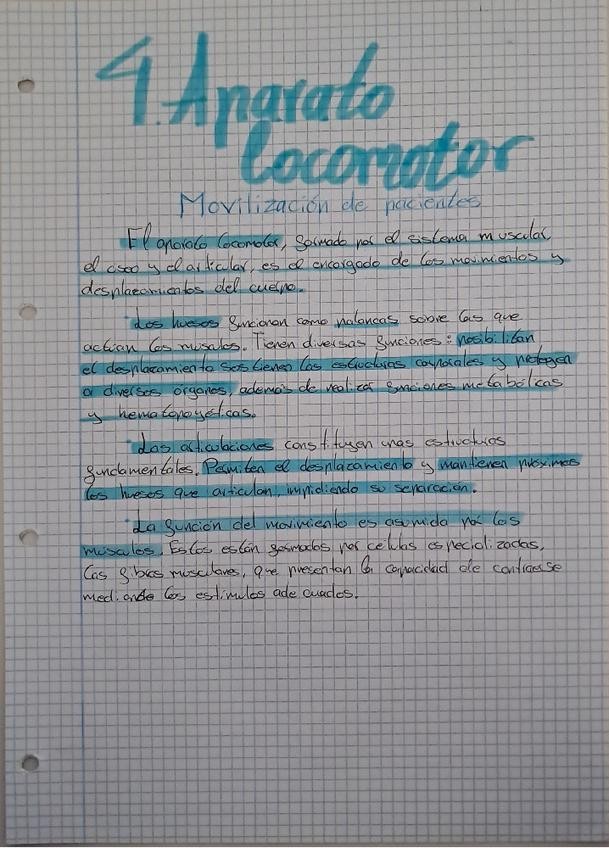 4. Aparato
locomotor
Movilización de pacientes
El aparato locomotor, formado por el sistema muscular,
el óseo y el articular, es el encargado de los movimientos y
desplazamientos del cuerpo.
Los huesos funcionan como palancas sobre las que
actúan los músculos. Tienen diversas funciones: posibilitan
el desplazamiento sostienen las estructuras corporales y protegen
a diversos órganos, además de realizar funciones metabólicas
y hematopoyéticas.
Las articulaciones constituyen unas estructuras
fundamentales. Permiten el desplazamiento y mantienen próximos
los huesos que articulan, impidiendo su separación.
La función del movimiento es asumida por los
músculos. Estos están formados por células especializadas,
las fibras musculares, que presentan la capacidad de contraerse
mediante los estímulos adecuados.